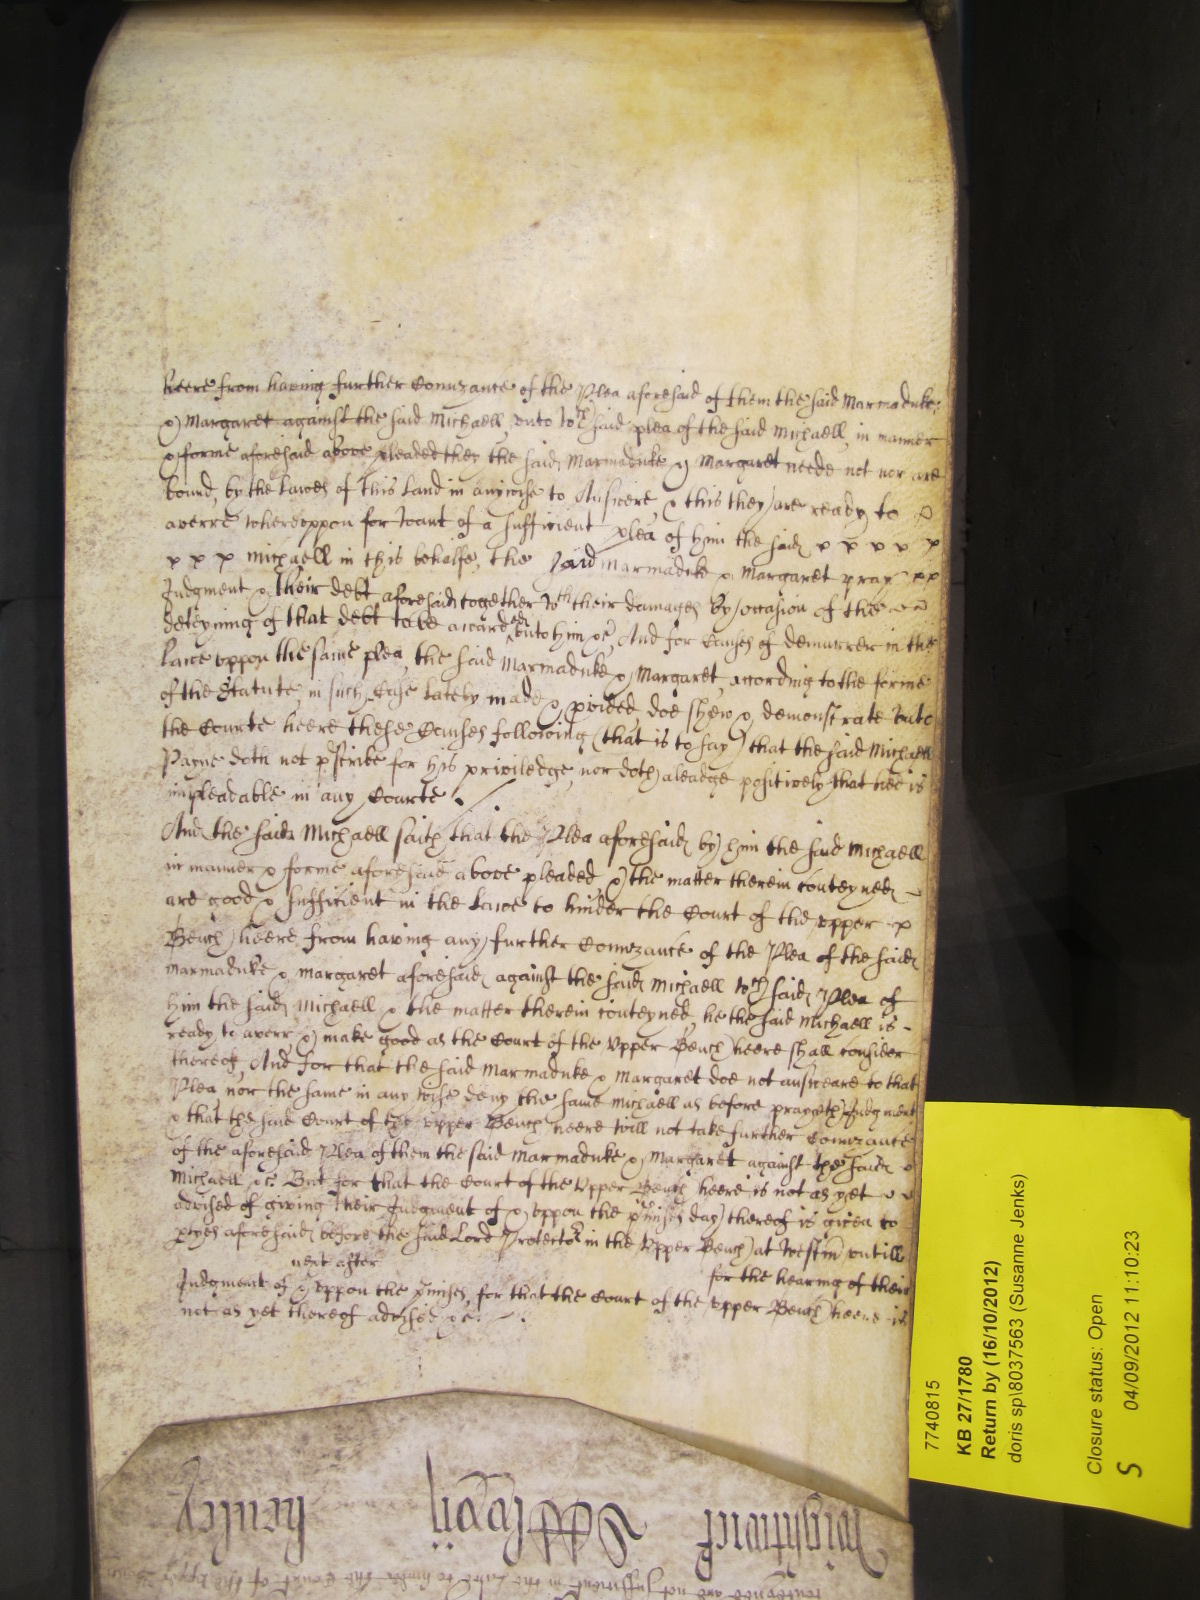 heere from having further Conuzance of the Plea aforesaid of them the said Marmaduke
& Margaret against the said Michaell, unto wch said plea of the said Michaell, in manner
& forme aforesaid above pleaded they the said Marmaduke & Margaret neede not nor are
bound, by the Lawes of this Land in anywise to Answere, & this they are ready to
averre whereuppon for want of a sufficient plea of him the said
Michaell in this behalfe, the said Marmaduke & Margaret pray
Judgment & their debt aforesaid together wth their damages by occasion of the
deteyning of that debt to be awarded unto him &c, And for Causes of demurrer in the
Lawe uppon the same plea, the said Marmaduke & Margaret, according to the forme
of the Statute, in such Case lately made & pvided, doe shew & demonstrate unto
the Courte heere these Causes following (that is to say) that the said Michaell
Payne doth not pscribe for his priviledge, nor doth aleadge positively that hee is
impleadable in any Courte
And the said Michaell saith that the Plea aforesaid by him the said Michaell
in manner & forme aforesaid above pleaded, & the matter therein conteyned
are good & sufficient in the Lawe to hinder the Court of the upper
Bench heere from having any further Conuzance of the Plea of the said
Marmaduke & Margaret aforesaid against the said Michaell wch said Plea of
him the said Michaell & the matter therein conteyned, he the said Michaell is
ready to averr & make good as the Court of the Upper Bench heere shall consider
thereof, And for that the said Marmaduke & Margaret doe not answeare to that
Plea nor the same in any wise deny the same Michaell as before prayeth Judgment
& that the said Court of the upper Bench heere will not take further Conuzance
of the aforesaid Plea of them the said Marmaduke & Margaret against the said
Michaell &c But for that the Court of the Upper Bench heere is not as yet
advised of giving their Judgment of & uppon the pmises day thereof is given to
ptyes aforesaid before the said Lord Protector in the Upper Bench at Westm untill
next after for the hearing of their
Judgment of & uppon the pmises, for that the Court of the upper Bench heere is
not as yet thereof advised &c.
7740815
KB 27/1780
Return by (16/10/2012)
doris sp\8037563 (Susanne Jenks)
Closure status: Open
S 04/09/2012 11:10:23
Wightwick henley
sufficient in the Lawe to hinder the Court of the upper